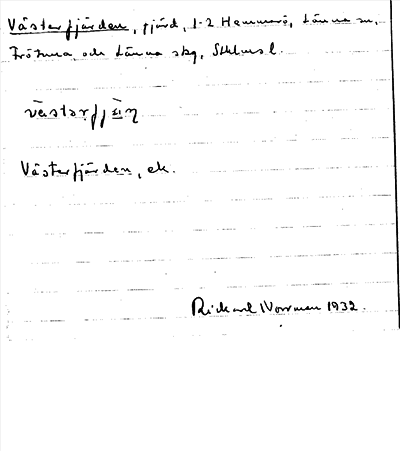 Västerfjärden, fjärd, 1-2 Hammarö, Länna sn,
Frötuna och Länna skg, Sthlms l.
västərfjæ̀ṇ
Västerfjärden, ek.
Rickard Norrman 1932.